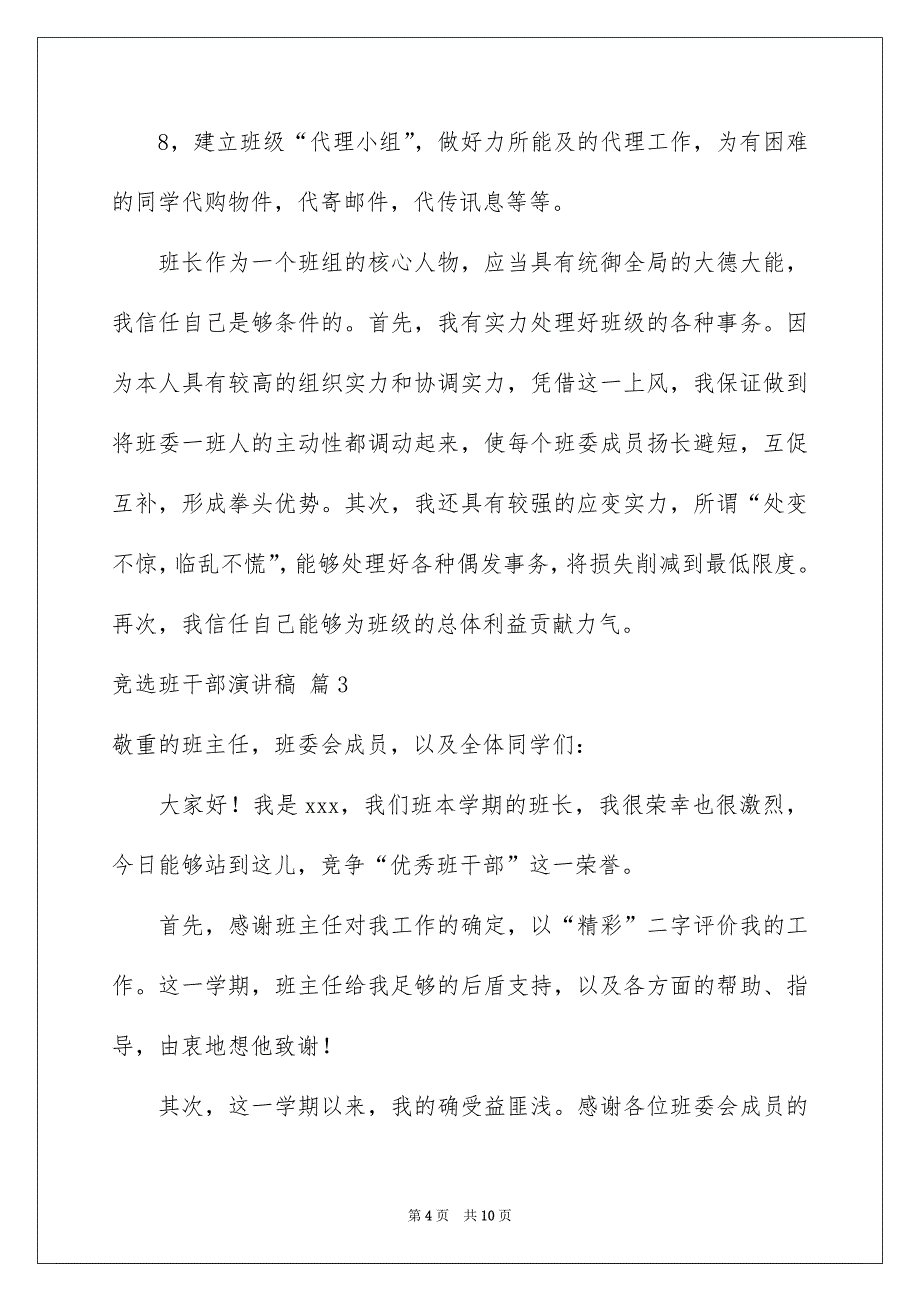 8，建立班级“代理小组”，做好力所能及的代理工作，为有困难
的同学代购物件，代寄邮件，代传讯息等等。
班长作为一个班组的核心人物，应当具有统御全局的大德大能，
我信任自己是够条件的。首先，我有实力处理好班级的各种事务。因
为本人具有较高的组织实力和协调实力，凭借这一上风，我保证做到
将班委一班人的主动性都调动起来，使每个班委成员扬长避短，互促
互补，形成拳头优势。其次，我还具有较强的应变实力，所谓“处变
不惊，临乱不慌”，能够处理好各种偶发事务，将损失削减到最低限度。
再次，我信任自己能够为班级的总体利益贡献力气。
竞选班干部演讲稿 篇3
敬重的班主任，班委会成员，以及全体同学们：
大家好！我是xxx，我们班本学期的班长，我很荣幸也很激烈，
今日能够站到这儿，竞争“优秀班干部”这一荣誉。
首先，感谢班主任对我工作的确定，以“精彩”二字评价我的工
作。这一学期，班主任给我足够的后盾支持，以及各方面的帮助、指
导，由衷地想他致谢！
其次，这一学期以来，我的确受益匪浅。感谢各位班委会成员的
第 4 页 共 10 页